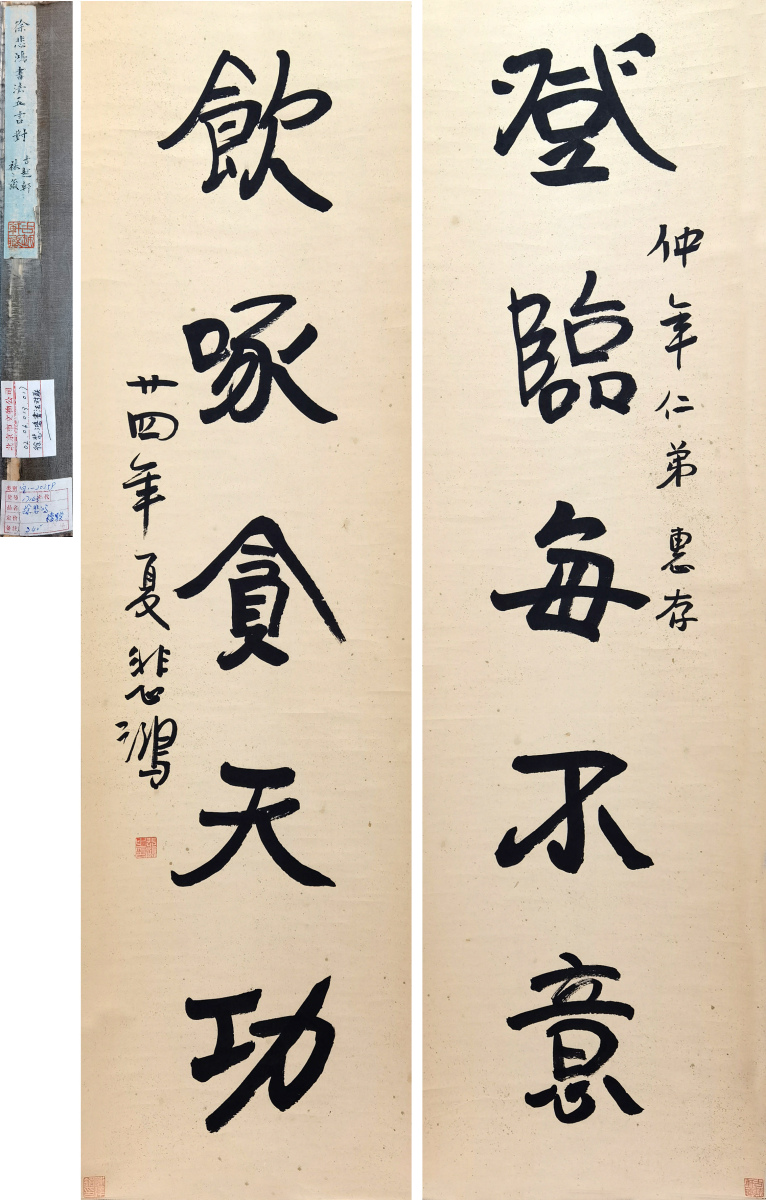 登臨每不意
仲年仁弟 惠存
飲啄貪天功
廿四年夏 悲鴻
徐悲鴻書法五言對
北京市文物公司